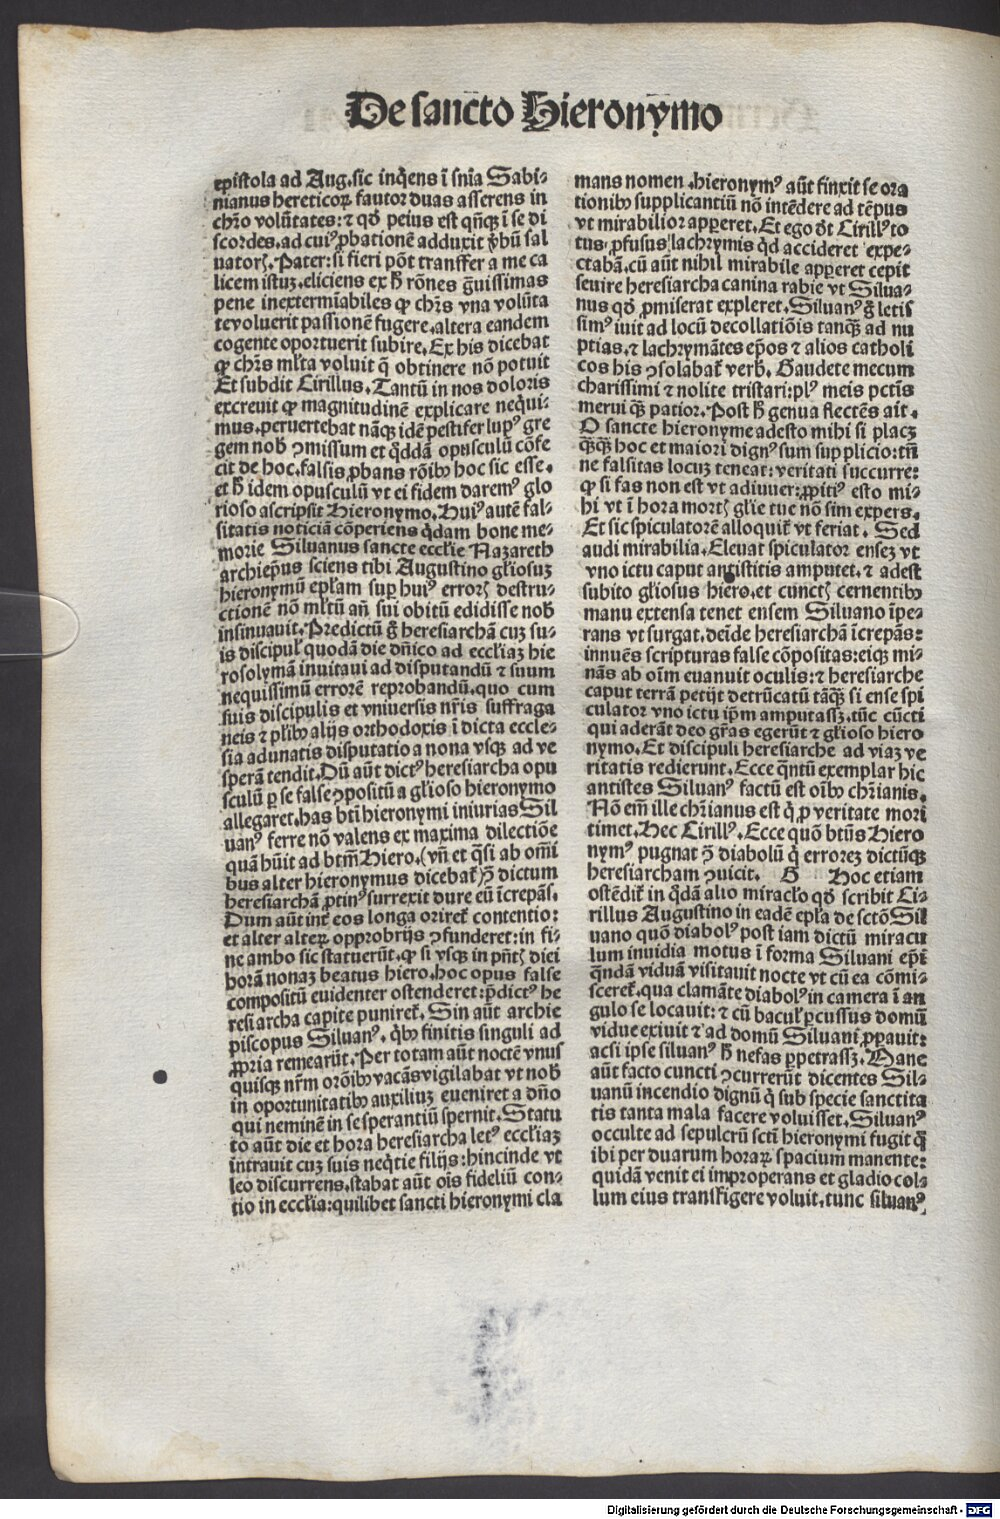 De sancto Hieronymo
epistola ad Aug. sic inq̄ens ī sn̄ia Sabi-
nianus hereticoꝝ fautor duas asserens in
chr̄o volūtates: ⁊ qđ peius est qn̄qꝫ ī se di
scordes, ad cuiꝰ ꝓbationē adduxit v̓bū sal
uatorꝭ. Pater: si fieri pōt transfer a me ca
licem istuꝫ. eliciens ex ħ rōnes ḡuissimas
pene inextermīabiles ꝙ chr̄s vna volūta
te voluerit passionē fugere, altera eandem
cogente oportuerit subire. Ex his dicebat
ꝙ chr̄s ml̓ta voluit q̄ obtinere nō potuit
Et subdit Cirillus. Tantū in nos doloris
excreuit ꝙ magnitudinē explicare neq̄ui-
mus. peruertebat nāqꝫ idē pestifer lupꝰ gre
gem nob̓ ꝯmissum et q̄ddā opusculū cōfe
cit de hoc, falsis ꝓbans rōib̓ hoc sic esse.
et ħ idem opusculū vt ei fidem daremꝰ glo
rioso ascripsit Hieronymo. Huiꝰ autē fal-
sitatis noticiā cōperiens q̄dam bone me-
morie Siluanus sancte eccl̓ie Nazareth
archiep̄us sciens tibi Augustino gl̓iosuꝫ
hieronymū epl̓am sup̱ huiꝰ errorꝭ destru-
ctionē nō ml̓tū an̄ sui obitū edidisse nob̓
insinuauit. Predictū g̊ heresiarchā cuꝫ su-
is discipul̓ quodā die dn̄ico ad eccl̓iaꝫ hie
rosolymā inuitaui ad disputandū ⁊ suum
nequissimū errorē reprobandū. quo cum
suis discipulis et vniuersis nr̄is suffraga
neis ⁊ pl̓ib̓ alijs orthodoxis ī dicta eccle-
sia adunatis disputatio a nona vsqꝫ ad ve
sperā tendit. Dū aūt dictꝰ heresiarcha opu
sculū ꝑ se false ꝯpositū a gl̓ioso hieronymo
allegaret, has bt̄i hieronymi iniurias Sil
uanꝰ ferre nō valens ex maxima dilectiōe
quā hūit ad btm̄ Hiero. (vn̄ et q̄si ab om̄i
bus alter hieronymus dicebat̓) ꝯ̄ dictum
heresiarchā ꝓtinꝰ surrexit dure eū īcrepās.
Dum aūt int̓ eos longa oriret̓ contentio:
et alter alterꝝ opprobrijs ꝯfunderet: in fi-
ne ambo sic statuerūt, ꝙ si vsqꝫ in pn̄tꝭ diei
horā nonaꝫ beatus hiero. hoc opus false
compositū euidenter ostenderet: p̄dictꝰ he
resiarcha capite puniret̓. Sin aūt archie
piscopus Siluanꝰ. q̄b̓ finitis singuli ad
ꝓpria remearūt. Per totam aūt noctē vnus
quisqꝫ nr̄m orōib̓ vacās vigilabat vt nob̓
in oportunitatib̓ auxiliuꝫ eueniret a dn̄o
qui neminē in se sperantiū spernit. Statu
to aūt die et hora heresiarcha letꝰ eccl̓iaꝫ
intrauit cuꝫ suis neq̄tie filijs: hincinde vt
leo discurrens. stabat aūt oīs fideliū con-
tio in eccl̓ia: quilibet sancti hieronymi cla
mans nomen. hieronymꝰ aūt finxit se ora
tionib̓ supplicantiū nō intēdere ad tēpus
vt mirabilior apꝑeret. Et ego ø̄t Cirillꝰ to
tus ꝓfusus lachrymis qđ accideret expe-
ctabā. cū aūt nihil mirabile apꝑeret cepit
seuire heresiarcha canina rabie vt Silua-
nus qđ ꝓmiserat expleret. Siluanꝰ g̊ letis
simꝰ iuit ad locū decollatiōis tanqꝫ ad nu
ptias. ⁊ lachrymātes ep̄os ⁊ alios catholi
cos his ꝯsolabat̓ verb̓. Gaudete mecum
charissimi ⁊ nolite tristari: plꝰ meis pctīs
merui qꝫ patior. Post ħ genua flectēs ait.
O sancte hieronyme adesto mihi si placꝫ
q̄qꝫ hoc et maiori dignꝰ sum supplicio: tn̄
ne falsitas locuꝫ teneat: veritati succurre:
ꝙ si fas non est vt adiuuer: ꝓpitiꝰ esto mi-
hi vt ī hora mortꝭ gl̓ie tue nō sim expers.
Et sic spiculatorē alloquit̓ vt feriat. Sed
audi mirabilia. Eleuat spiculator enseꝫ vt
vno ictu caput antistitis amputet. ⁊ adest
subito gl̓iosus hiero. et cunctꝭ cernentib̓
manu extensa tenet ensem Siluano īpe-
rans vt surgat. deīde heresiarchā īcrepās:
innuēs scripturas false cōpositas: eiqꝫ mi-
nās ab oīm euanuit oculis: ⁊ heresiarche
caput terrā petijt detrūcatū tāqꝫ si ense spi
culator vno ictu ip̄m amputassꝫ. tūc cūcti
qui aderāt deo gr̄as egerūt ⁊ gl̓ioso hiero
nymo. Et discipuli heresiarche ad viaꝫ ve
ritatis redierunt. Ecce q̄ntū exemplar hic
antistes Siluanꝰ factū est oīb̓ chr̄ianis.
Nō em̄ ille chr̄ianus est q̇ ꝓ veritate mori
timet. Hec Cirillꝰ. Ecce quō bt̄us Hiero
nymꝰ pugnat ꝯ̄ diabolū q̇ erroreꝫ dictūqꝫ
heresiarcham ꝯuicit. G Hoc etiam
ostēdit̓ in q̄dā alio miracl̓o qđ scribit Ci-
rillus Augustino in eadē epl̓a de sctō Sil
uano quō diabolꝰ post iam dictū miracu
lum inuidia motus ī forma Siluani ep̄i
q̄ndā viduā visitauit nocte vt cū ea cōmi-
sceret̓. qua clamāte diabolꝰ in camera ī an
gulo se locauit: ⁊ cū bacul̓ ꝑcussus domū
vidue exiuit ⁊ ad domū Siluani ꝓꝑauit:
acsi ipse siluanꝰ ħ nefas ꝑpetrassꝫ. Mane
aūt facto cuncti ꝯcurrerūt dicentes Sil-
uanū incendio dignū q̇ sub specie sanctita
tis tanta mala facere voluisset. Siluanꝰ
occulte ad sepulcrū sctī hieronymi fugit q̄
ibi per duarum horaꝝ spacium manente:
quidā venit ei improperans et gladio col-
lum eius transfigere voluit. tunc siluanꝰ
Digitalisierung gefördert durch die Deutsche Forschungsgemeinschaft - DFG